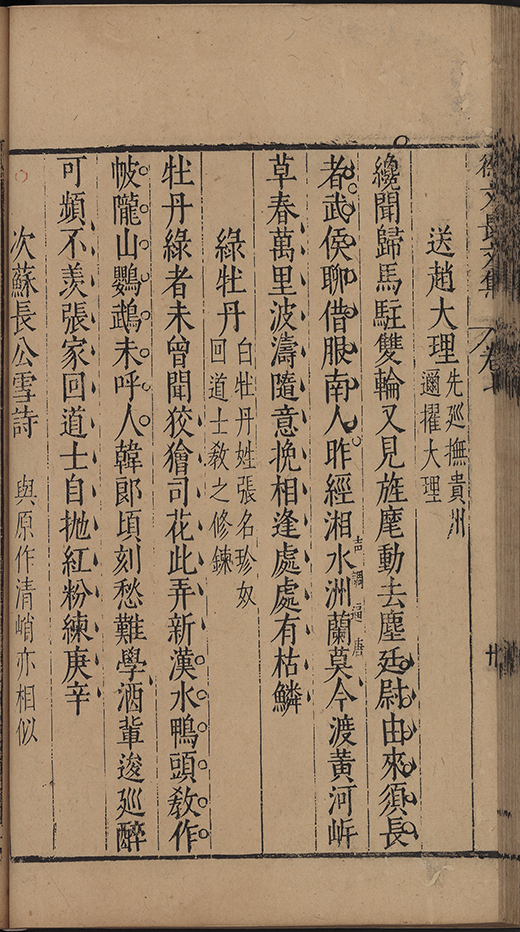 徐文長文集 卷七 廿
送趙大理 先廵撫貴州
邇擢大理
纔聞歸馬駐雙輪又見旌麾動去塵廷尉由來須長
者武侯聊借服南人昨經湘水洲蘭莫今渡黃河岍
草春萬里波濤隨意挽相逢處處有枯鱗
音調逼唐
綠牡丹 白牡丹姓張名珍奴
回道士敎之修鍊
牡丹綠者未曾聞狡獪司花此弄新漢水鴨頭敎作
帔隴山鸚鵡未呼人韓郎頃刻愁難學酒軰逡廵醉
可頻不羡張家回道士自抛紅粉練庚辛
次蘇長公雪詩 與原作清峭亦相似